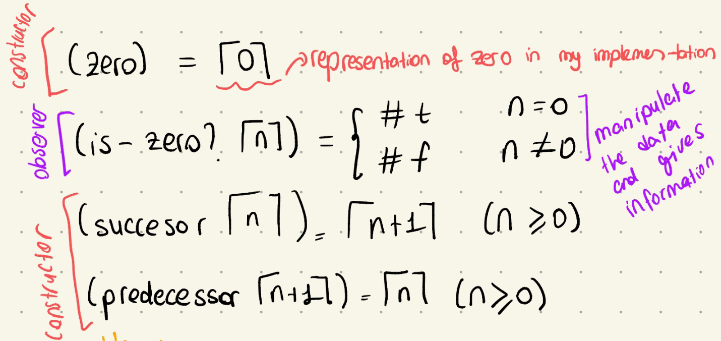 constructor
(zero) = ⌈0⌉ → representation of zero in my implemen-tation
observer
(is-zero? ⌈n⌉) = { #t n=0
#f n≠0
manipulate
the data
and gives
information
constructor
(succesor ⌈n⌉) = ⌈n+1⌉ (n ≥ 0)
(predecessor ⌈n+1⌉) = ⌈n⌉ (n ≥ 0)